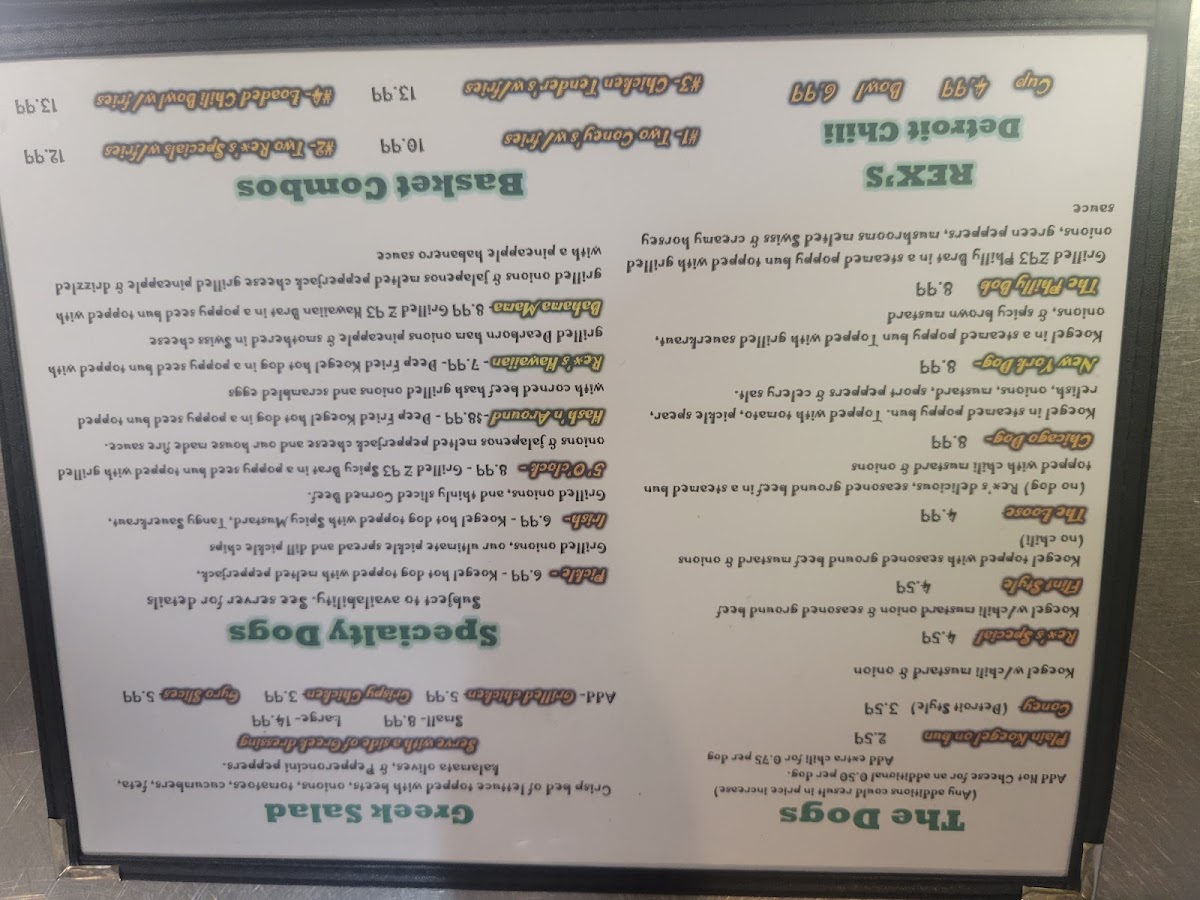 The Dogs
(Any additions could result in price increase)
Add Hot Cheese for an additional 0.50 per dog.
Add extra chili for 0.75 per dog
Plain Koegel on bun 2.59
Coney- (Detroit Style) 3.59
Koegel w/chili mustard & onion
Rex's Special 4.59
Koegel w/chili mustard onion & seasoned ground beef
Flint Style 4.59
Koegel topped with seasoned ground beef mustard & onions
(no chili)
The Loose 4.99
(no dog) Rex's delicious, seasoned ground beef in a steamed bun
topped with chili mustard & onions
Chicago Dog- 8.99
Koegel in steamed poppy bun. Topped with tomato, pickle spear,
relish, onions, mustard, sport peppers & celery salt.
New York Dog- 8.99
Koegel in a steamed poppy bun Topped with grilled sauerkraut,
onions, & spicy brown mustard
The Philly Bob 8.99
Grilled Z93 Philly Brat in a steamed poppy bun topped with grilled
onions, green peppers, mushrooms melted Swiss & creamy horsey
sauce
REX'S
Detroit Chili
Cup 4.99 Bowl 6.99
Greek Salad
Crisp bed of lettuce topped with beets, onions, tomatoes, cucumbers, feta,
kalamata olives, & Pepperoncini peppers.
Serve with a side of Greek dressing
Small- 8.99 Large- 14.99
Add- Grilled chicken 5.99 Crispy Chicken 3.99 Gyro Slices 5.99
Specialty Dogs
Subject to availability. See server for details
Pickle- 6.99 - Koegel hot dog topped with melted pepperjack,
Grilled onions, our ultimate pickle spread and dill pickle chips
Irish- 6.99 - Koegel hot dog topped with Spicy Mustard, Tangy Sauerkraut,
Grilled onions, and thinly sliced Corned Beef.
5'O'clock- 8.99 - Grilled Z 93 Spicy Brat in a poppy seed bun topped with grilled
onions & jalapenos melted pepperjack cheese and our house made fire sauce.
Hash'n Around-$8.99 - Deep Fried Koegel hot dog in a poppy seed bun topped
with corned beef hash grilled onions and scrambled eggs
Rex's Hawaiian- 7.99- Deep Fried Koegel hot dog in a poppy seed bun topped with
grilled Dearborn ham onions pineapple & smothered in Swiss cheese
Bahama Mama- 8.99 Grilled Z 93 Hawaiian Brat in a poppy seed bun topped with
grilled onions & jalapenos melted pepperjack cheese grilled pineapple & drizzled
with a pineapple habanero sauce
Basket Combos
#1- Two Coney's w/fries 10.99 #2- Two Rex's Specials w/fries 12.99
#3- Chicken Tender's w/fries 13.99 #4- Loaded Chili Bowl w/fries 13.99